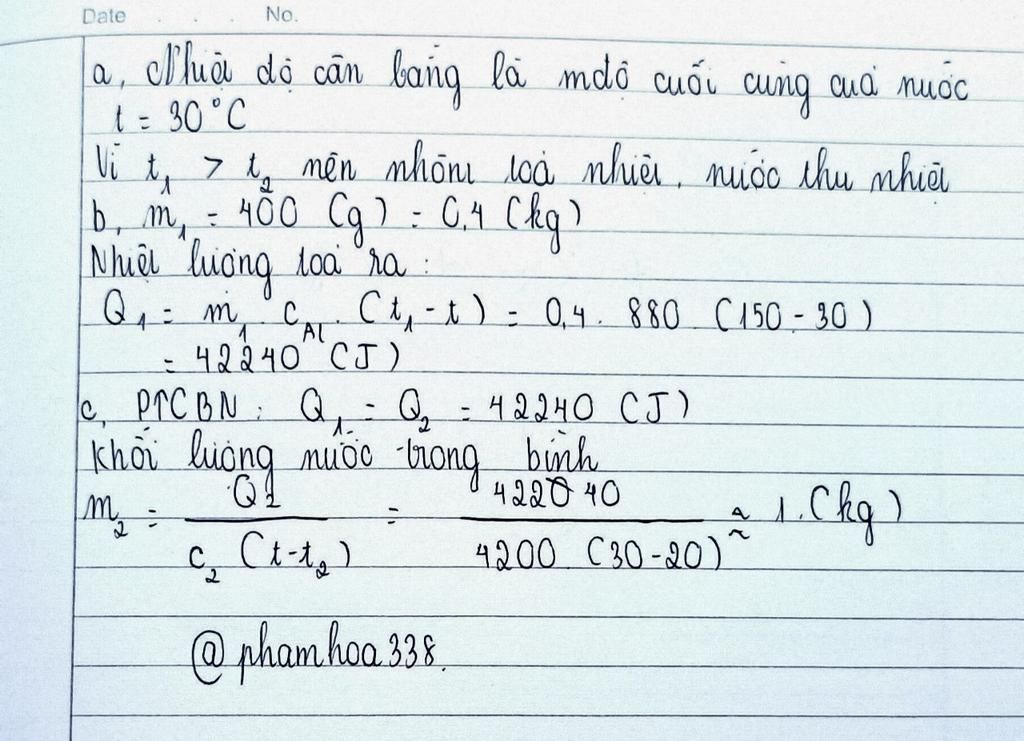 Date . . . No.
a, Nhiệt độ cân bằng là nđộ cuối cùng của nước
t = 30°C
Vì t₁ > t₂ nên nhôm toả nhiệt, nước thu nhiệt
b, m₁ = 400 (g) = 0,4 (kg)
Nhiệt lượng toả ra :
Q₁ = m₁ . c_Al . (t₁ - t) = 0,4 . 880 (150 - 30)
= 42240 (J)
c, PTCBN : Q₁ = Q₂ = 42240 (J)
Khối lượng nước trong bình
m₂ = Q₂ / c₂ (t - t₂) = 42240 / 4200 (30 - 20) ≈ 1 (kg)
@phamhoa338.